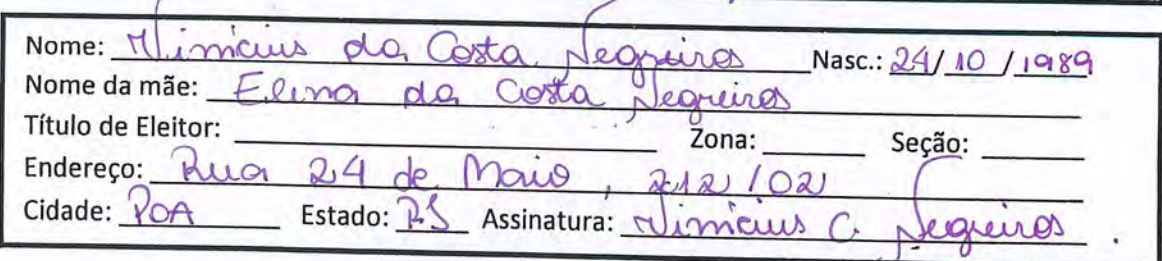 Nome: Vinicius da Costa Negreiros Nasc.: 24/10/1989
Nome da mãe: Elena da Costa Negreiros
Título de Eleitor: Zona: Seção:
Endereço: Rua 24 de Maio, 212/02
Cidade: POA Estado: RS Assinatura: Vinicius C. Negreiros